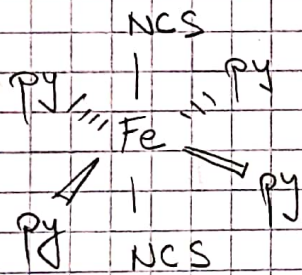 NCS
py py
Fe
py py
NCS